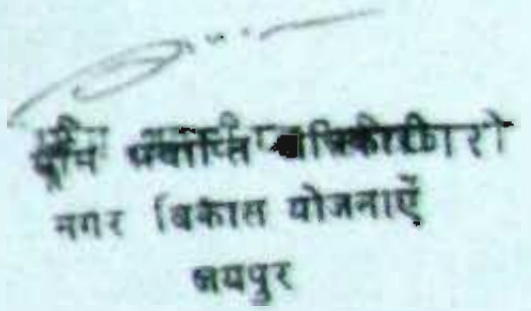 भूमि अवाप्ति अधिकारी
नगर विकास योजनाएँ
जयपुर